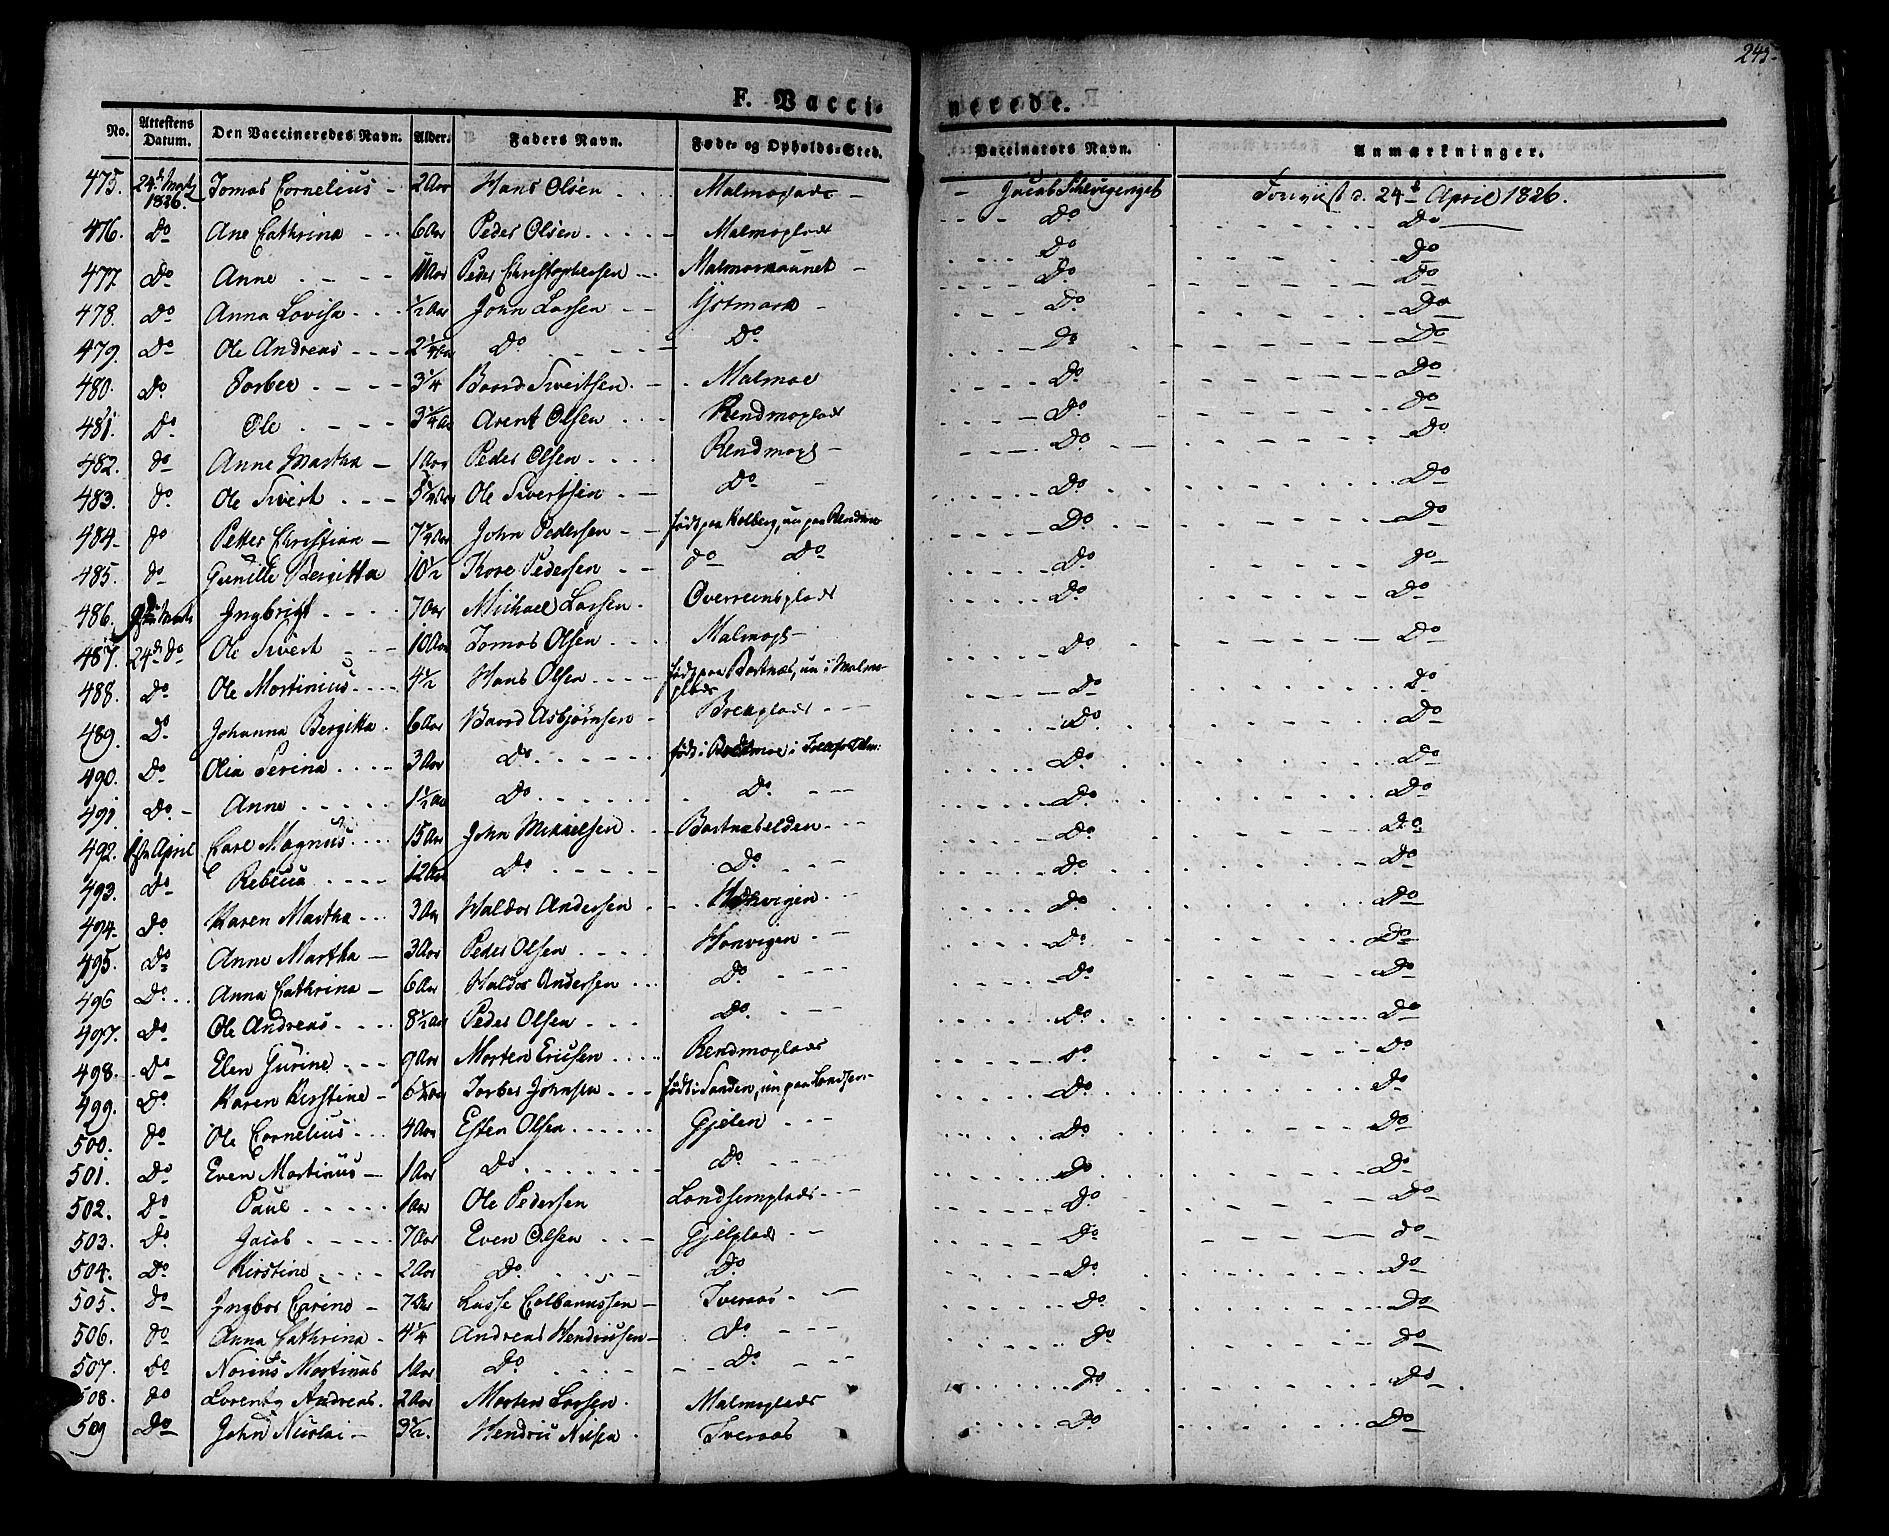 245.
F. Vaccinerede.
No. | Attestens Datum. | Den Vaccineredes Navn. | Alder. | Faders Navn. | Føde- og Opholds-Sted. | Vaccinators Navn. | Anmærkninger.
475. 24de Marts 1826. Tomas Cornelius 2 Aar Hans Olsen Malmoplads Jacob d. 24de April 1826.
476. Do Ane Cathrina 6 Aar Peder Olsen Malmoplads Do Do
477. Do Anne Peder Christophersen Do Do
478. Do Anna Lovisa 1/2 Aar John Larsen Do Do
479. Do Ole Andreas 2 1/4 Aar Do Do Do Do
480. Do Torber 3 1/4 Baard Sivertsen Malmoe Do Do
481. Do Ole 3 1/4 Aar Arent Olsen Rendmoplads Do Do
482. do Anne Martha 1 Aar Peder Olsen Do Do
483. do Ole Sivert Ole Sivertsen Do Do Do
484. do Petter Christian John Pedersen født paa Kolberg, nu paa Rendmo Do Do
485. do Gunille Bergitta 10 1/2 Tore Pedersen do Do Do do
486. Ingbrigt 7 Aar Michael Larsen Overreinsplads Do Do
487. 24de do Ole Sivert 10 Aar Tomas Olsen Do Do
488. Do Ole Martinius 4 1/2 Hans Olsen født paa Bartnæs, nu i Malmo-
plads Do Do
489. Do Johanna Bergitta 6 Aar Baard Asbjørnsen Brekplads Do Do
490. Do Olia Serina 3 Aar Do født i Do Do
491. Do Anne 1 1/2 Aar Do Do Do Do
492. 1ste April Carl Magnus 15 Aar John Mikaelsen Do Do
493. Do Rebecca 12 Aar Do Do Do Do
494. Do Karen Martha 3 Aar Haldor Andersen Do Do
495. Do Anne Martha 3 Aar Peder Olsen Horvigen Do Do
496 Do Anna Cathrina 6 Aar Haldor Andersen Do Do Do
497. Do Ole Andreas 8 1/2 Aar Peder Olsen Do Do Do
498. Do Elen Gurine 9 Aar Morten Ericsen Rendmoplads Do Do
499. Do Karen Kirstine Torber Johnsen født i Sanden, nu paa Do Do
500. do Ole Cornelius 4 Aar Esten Olsen Gjelen Do Do
501. Do Even Martinus 1 Aar Do Do Do Do
502. Do Paul 1 Aar Ole Pedersen Landsemplads Do Do
503. Do Jacob 7 Aar Even Olsen Gjelplads Do do
504. Do Kirstine 2 Aar Do Do Do Do
505. do Ingbor Carine 7 Aar Lasse Colbanussen Tveraas Do Do
506. do Anna Cathrina 4 1/4 Andreas Hendricsen Do Do do
507. do Norius Martinus 1 Aar Do Do Do Do
508. do Andreas 2 Aar Morten Larsen Malmoplads Do Do
509 Do John Nicolai 3 1/2 Hendric Nilsen Tveraas Do Do